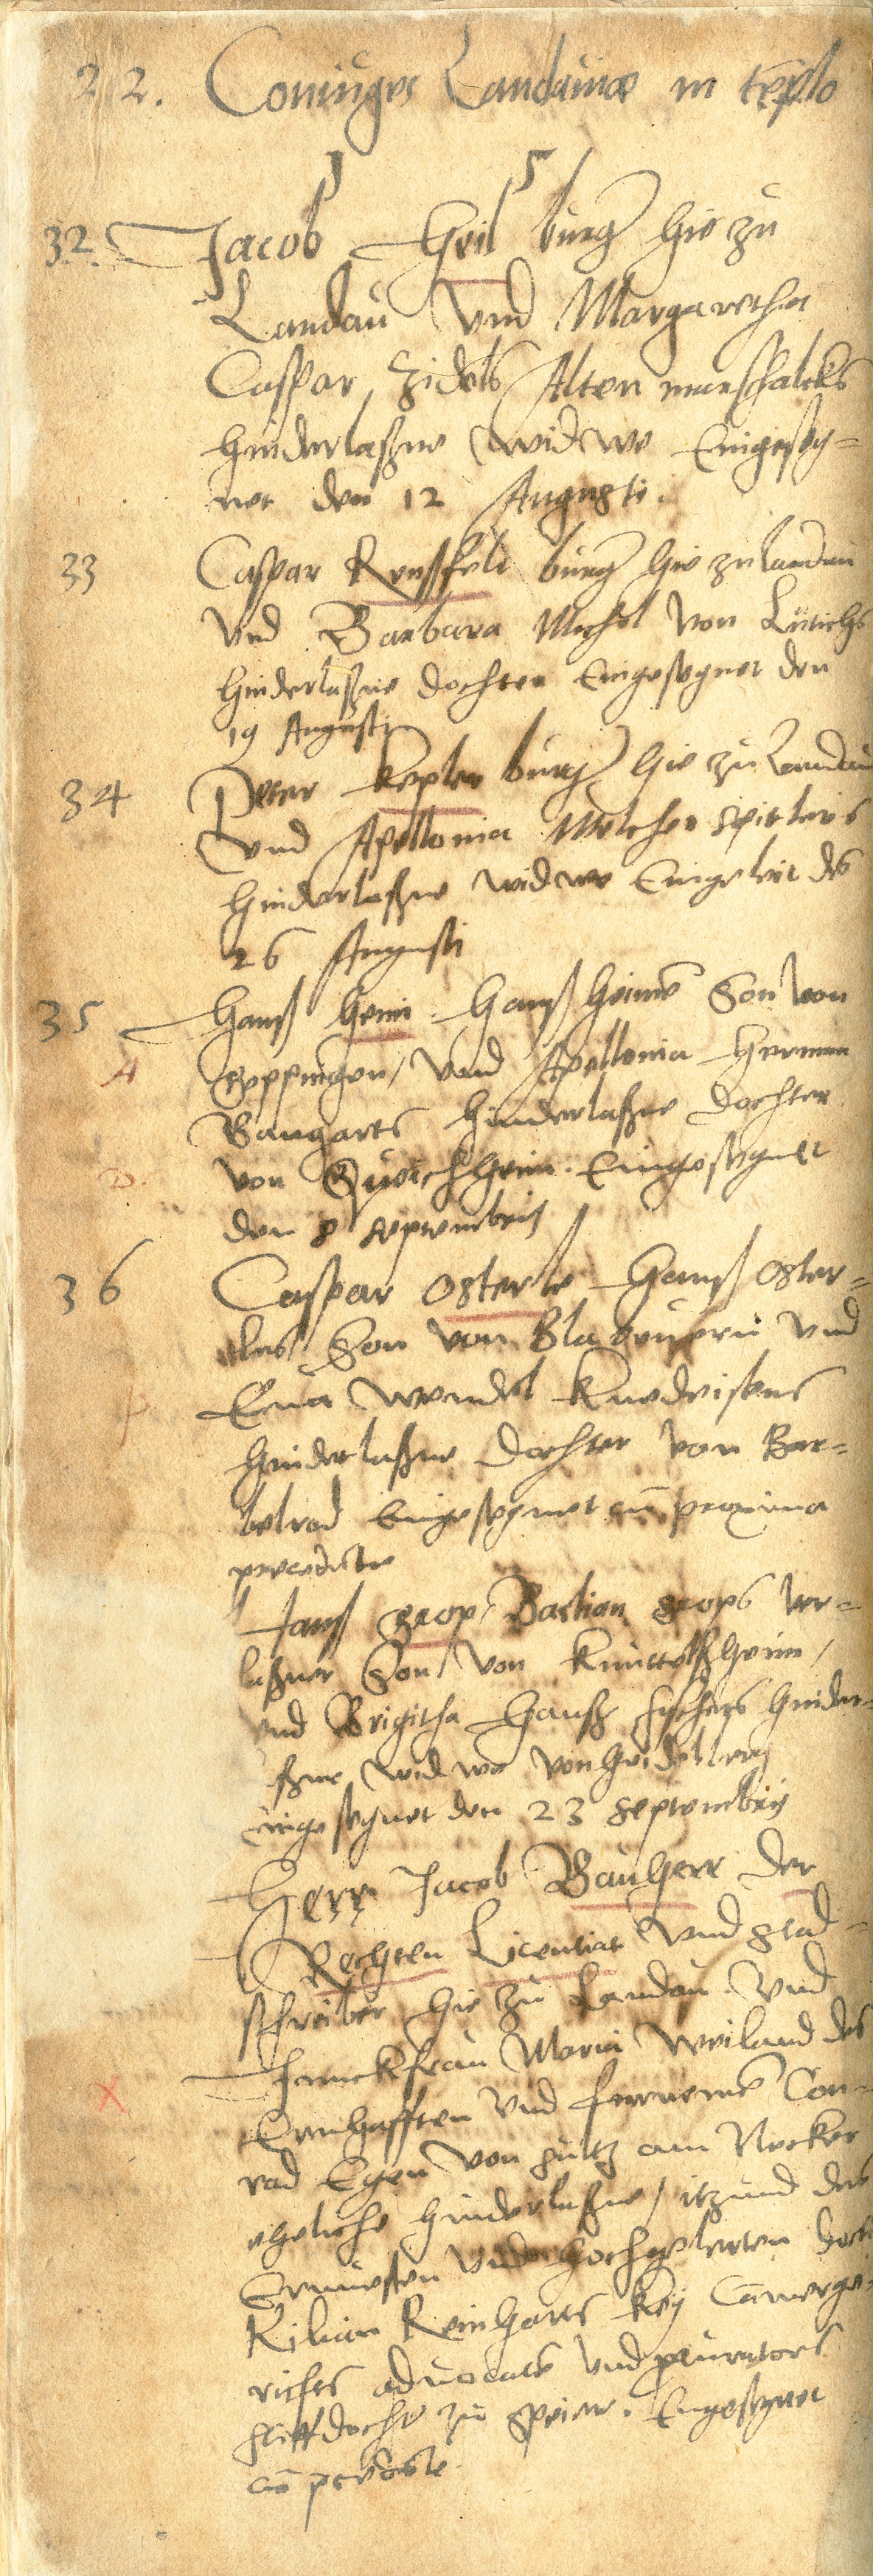 22. Coniuges Landauiae in templo
1 5
32. Jacob Heil burger hie zu
Landau Vnd Margaretha
Caspar Zidels Alten marschalcks
hinderlaßne widwe Eingeseg-
net den 12 Augusti.
33 Caspar burger hie zu landau
Vnd Barbara Michel Von
hinderlaßne dochter Eingesegnet den
19 Augusti
34 Peter Kepler burger hie zu Landau
Vnd Apellonia Melcher
hinderlaßne widwe Eingeleit des
26 Augusti
35 Hanß Heim Hanß Heimē Son Von
A Goppingen / Vnd Apellonia Herman
Bangarts hinderlaßne dochter
D. von Queichheim. Eingesegnet
den 8 septembris
36 Caspar Osterle Hanß Oster-
les Son Von Vnd
Eua Wendel
hinderlaßne dochter Von Bar-
belrod Eingesegnet cū proxima
precedēte
Hanß grop Bastian grops Ver-
laßner Son Von Knittelßheim /
Vnd Brigitha Hanß fischers hinder-
ßne widwe Von Heidelberg
eingesegnet den 23 septembris
Herr Jacob Bauherr der
Rechten Licentiat Vnd stad-
schreiber hie zu Landau Vnd
X Junckfrau Maria Weiland des
Ernhafften Vnd furnemē Con-
rad Egen von sultz am Necker
eheliche hinderlaßne / itzund des
Ernuesten Vnd Hochgelerten doct
Kilian Reinharts Key Cāmerge-
richts aduocatē Vnd procurators
stiffdochter zu Speier. Eingesegnet
cū